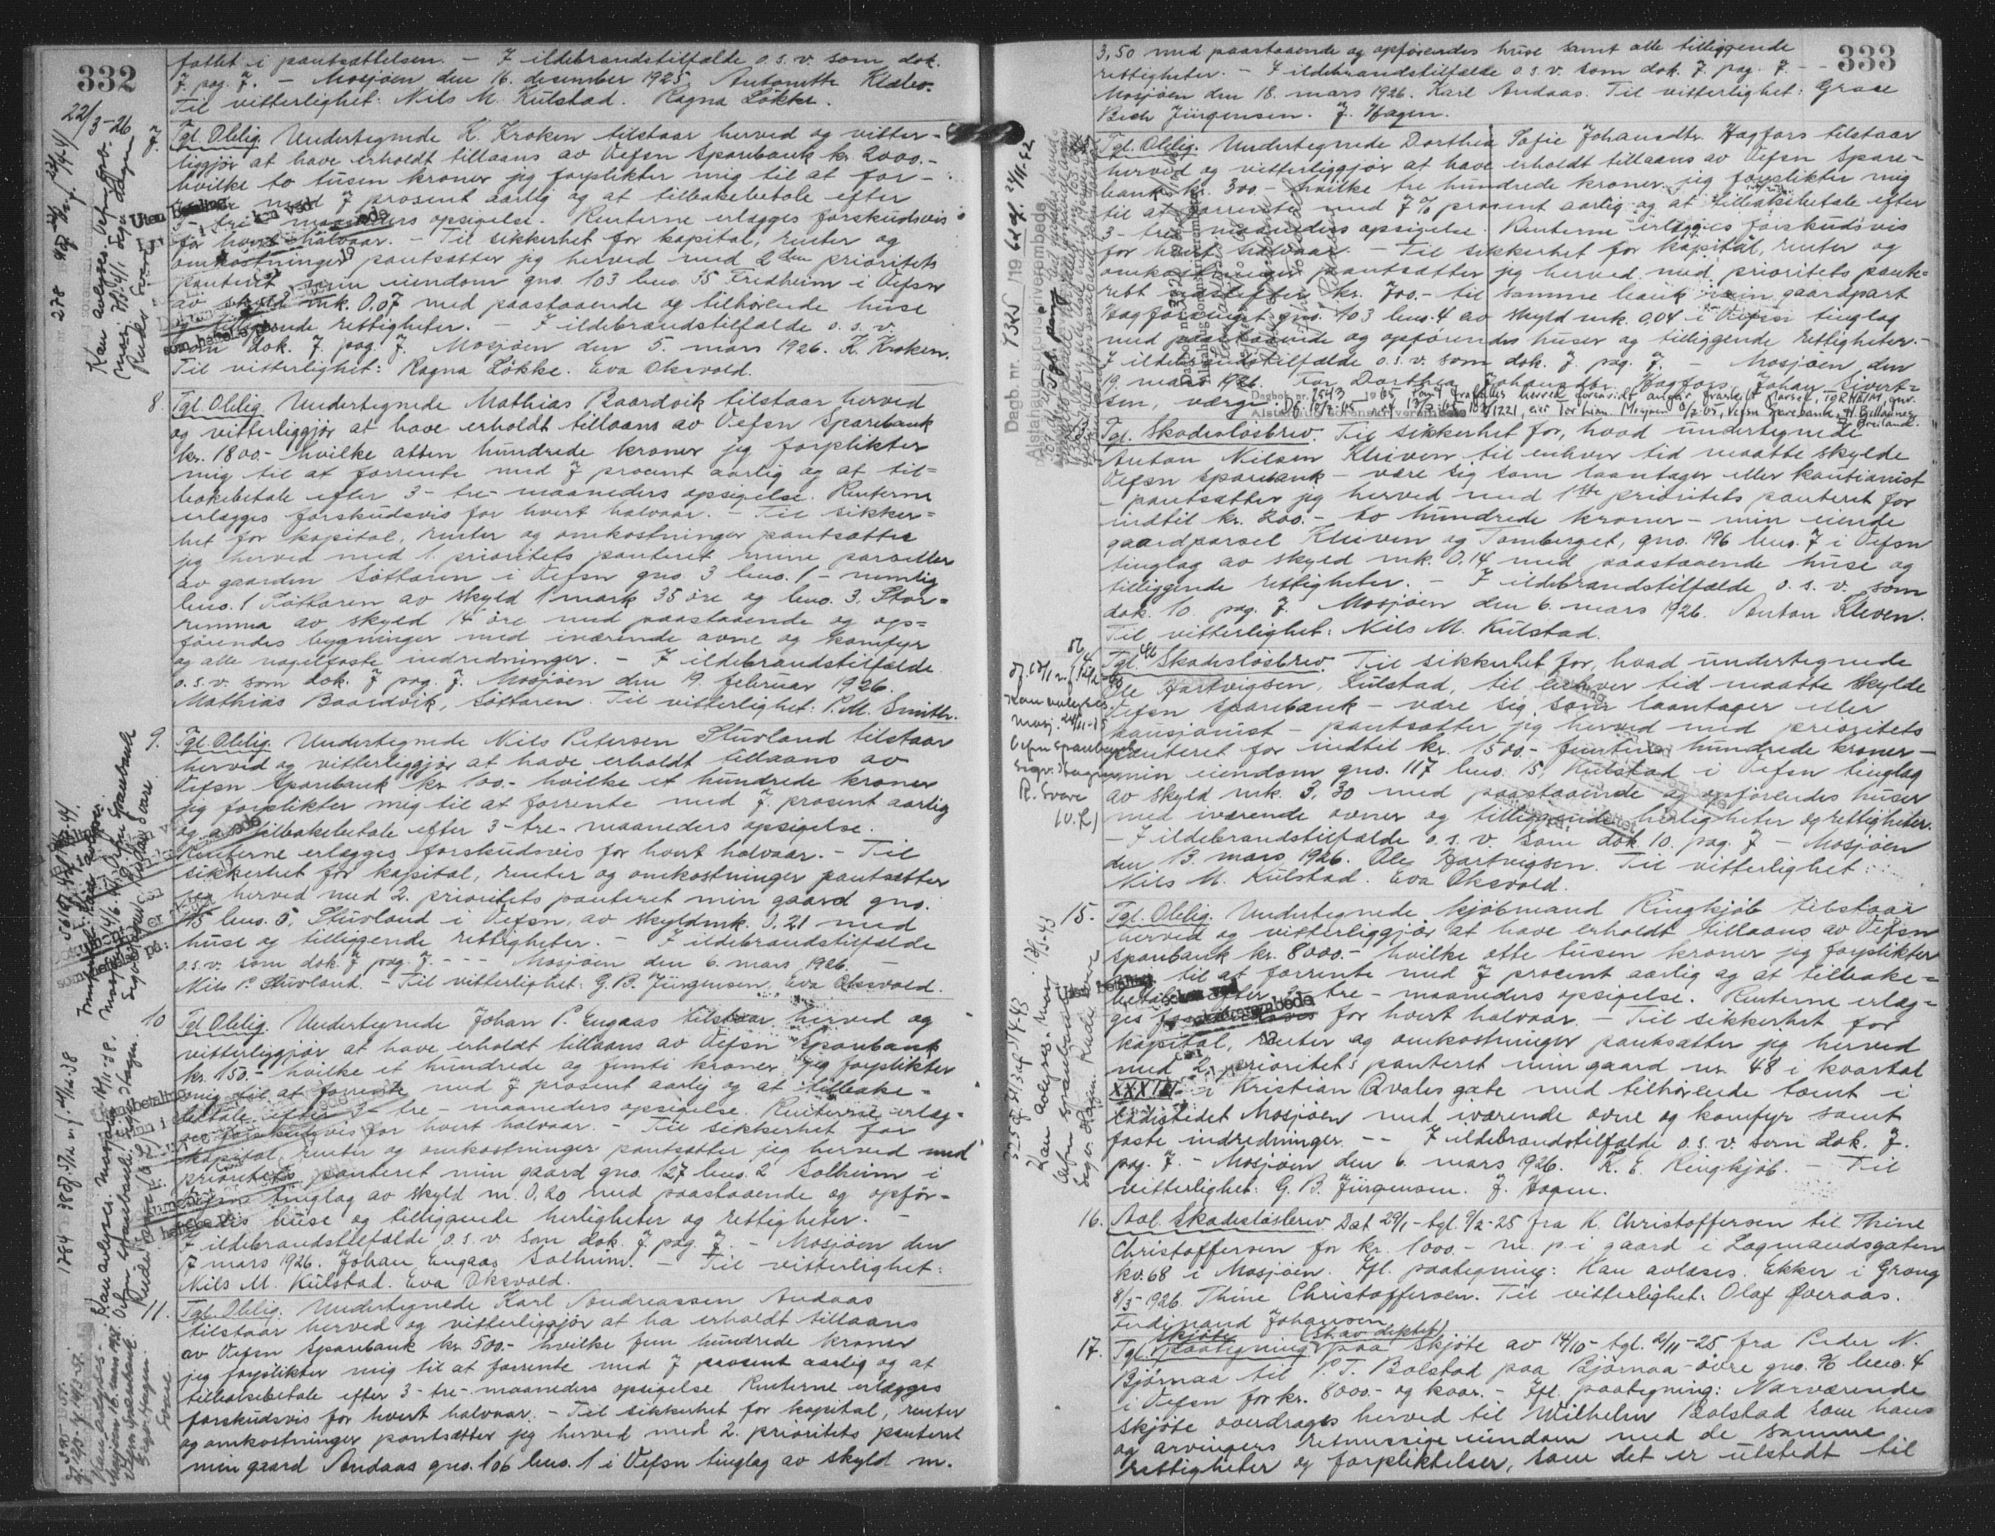 332
fattet i pantsættelsen. - I ildebrandstilfælde o.s.v. som dok.
7 pag. 7. - Mosjøen den 16. desember 1925. Antonette Klæbo.
Til vitterlighet: Nils M. Kulstad. Ragna Løkke.
22/3-26
7
Tgl. Oblig. Undertegnede K. Kroken tilstaar herved og vitter-
liggjør at have erholdt tillaans av Vefsn Sparebank kr. 2000.-
hvilke to tusen kroner jeg forplikter mig til at for-
med 7 prosent aarlig og at tilbakebetale efter
3- tre- maaneders opsigelse. Renterne erlægges forskudsvis
for hvert halvaar. - Til sikkerhet for kapital, renter og
omkostninger pantsætter jeg herved med 2den prioritets
panteret min eiendom gno. 103 bno. 55 Fredheim i Vefsn
av skyld mk. 0.07 med paastaaende og tilhørende huse
og tilliggende rettigheter. - I ildebrandstilfælde o. s. v.
som dok. 7. pag. 7. Mosjøen den 5. mars 1926. K. Kroken.
Til vitterlighet: Ragna Løkke. Eva Oksvold.
8
Tgl. Oblig. Undertegnede Mathias Baardvik tilstaar herved
og vitterliggjør at have erholdt tillaans av Vefsn Sparebank
kr. 1800.- hvilke atten hundrede kroner jeg forplikter
mig til at forrente med 7 procent aarlig og at til-
bakebetale efter 3- tre- maaneders opsigelse. Renterne
erlægges forskudsvis for hvert halvaar. - Til sikker-
het for kapital, renter og omkostninger pantsættes
jeg herved med 1. prioritets panteret mine parseller
av gaarden Søttaren i Vefsn gno. 3 bno. 1 - nemlig
bno. 1 Søttaren av skyld 1 mark 35 øre og bno. 3. Stor-
remma av skyld 14 øre med paastaaende og op-
førendes bygninger med iværende ovne og komfyr
og alle nagelfaste indredninger. - I ildebrandstilfælde
o.s.v. som dok. 7 pag. 7. Mosjøen den 19. februar 1926.
Mathias Baardvik, Søttaren. Til vitterlighet: P. M. Smith.
9.
Tgl. Oblig. Undertegnede Nils Petersen Stuvland tilstaar
herved og vitterliggjør at have erholdt tillaans av
Vefsn Sparebank kr. 100.- hvilke et hundrede kroner
jeg forplikter mig til at forrente med 7. prosent aarlig
og at tilbakebetale efter 3-tre- maaneders opsigelse.
Renterne erlægges forskudsvis for hvert halvaar. - Til
sikkerhet for kapital, renter og omkostninger pantsætter
jeg herved med 2. prioritets panteret min gaard gno.
115 bno. 5. Stuvland i Vefsn, av skyldmk. 0.21 med
huse og tilliggende rettigheter. - I ildebrandstilfælde
o.s.v. som dok. 7 pag. 7. - - - Mosjøen den 6. mars 1926. -
Nils P. Stuvland. - Til vitterlighet: G. B. Jürgensen, Eva Oksvold.
10
Tgl. Oblig. Undertegnede Johan P. Engaas tilstaar herved og
vitterliggjør at have erholdt tillaans av Vefsn Sparebank
kr. 150.- hvilke et hundrede og femti kroner jeg forplikter
mig til at forrente med 7 prosent aarlig og at tilbake-
betale efter 3- tre- maaneders opsigelse. Renterne erlæg-
ges forskudsvis for hvert halvaar. - Til sikkerhet for
kapital, renter og omkostninger pantsætter jeg herved med
prioritets panteret min gaard gno. 127 bno. 2 Solheim i
Vefsn tinglag av skyld m. 0.20 med paastaaende og opfør-
endes huse og tilliggende herligheter og rettigheter. -
I ildebrandstilfælde o.s.v. som dok. 7 pag. 7. - Mosjøen den
7 mars 1926. Johan Engaas Solheim. - Til vitterlighet:
Nils M. Kulstad. Eva Oksvold.
11.
Tgl. Oblig. Undertegnede Karl Andreassen Andaas
tilstaar herved og vitterliggjør at ha erholdt tillaans
av Vefsn Sparebank kr. 500.- hvilke fem hundrede kroner
jeg forplikter mig til at forrente med 7 prosent aarlig og at
tilbakebetale efter 3- tre- maaneders opsigelse. Renterne erlægges
forskudsvis for hvert halvaar. - Til sikkerhet for kapital, renter
og omkostninger pantsætter jeg herved med 2. prioritets panteret
min gaard Andaas gno. 106 bno. 1 i Vefsn tinglag av skyld m.
333
3,50 med paastaaende og opførendes huse samt alle tilliggende
rettigheter. - I ildebrandstilfælde o. s. v. som dok. 7 pag. 7. - -
Mosjøen den 18. mars 1926. Karl Andaas. Til vitterlighet: Grace
Bech Jürgensen. J. Hagen.
Tgl. Oblig. Undertegnede Dorthea Sofie Johansdtr. Hagfors tilstaar
herved og vitterliggjør at have erholdt tillaans av Vefsn Spare-
bank kr. 300.- hvilke tre hundrede kroner jeg forplikter mig
til at forrente med 7 % prosent aarlig og at tilbakebetale efter
3- tre- maaneders opsigelse. Renterne erlægges forskudsvis
for hvert halvaar. - Til sikkerhet for kapital, renter og
omkostninger pantsætter jeg herved med prioritets pante-
rett næstefter kr. 700.- til samme bank min gaardpart
Hagfors gno. 103 bno. 4 av skyld mk. 0,04 i Vefsn tinglag
med paastaaende og opførendes huser og tilliggende rettigheter.-
I ildebrandstilfælde o.s.v. som dok. 7 pag. 7. - Mosjøen den
19. mars 1926. For Dorthea Johansdtr. Hagfors, Johan Sivert-
sen, værge.
Tgl. Skadesløsbrev. Til sikkerhet for, hvad undertegnede
Anton Nilsen Kleiven til enhver tid maatte skylde
Vefsn Sparebank - være sig som laantager eller kautionist
- pantsætter jeg herved med 1ste prioritets panteret for
indtil kr. 200.- to hundrede kroner - min eiende
gaardparsel Kleiven og Tomberget, gno. 196 bno. 7 i Vefsn
tinglag av skyld mk. 0.14 med paastaaende huse og
tilliggende rettigheter. - I ildebrandstilfælde o. s. v. som
dok. 10. pag. 7. Mosjøen den 6. mars 1926. Anton Kleven.
Til vitterlighet: Nils M. Kulstad.
Tgl. Skadesløsbrev. Til sikkerhet for, hvad undertegnede
Ole Hartvigsen, Kulstad, til enhver tid maatte skylde
Vefsn Sparebank - være sig som laantager eller
kausjonist - pantsætter jeg herved med prioritets
panteret for indtil kr. 1500.- femten hundrede kroner -
min eiendom gno. 117 bno. 15, Kulstad i Vefsn tinglag
av skyld mk. 3,30 med paastaaende og opførendes huser
med iværende ovner og tilliggende herligheter og rettigheter.
- I ildebrandstilfælde o. s. v. som dok. 10. pag. 7 - Mosjøen
den 13. mars 1926. Ole Hartvigsen. Til vitterlighet:
Nils M. Kulstad. Eva Oksvold.
15.
Tgl. Oblig. Undertegnede kjøbmand Ringkjøb tilstaar
herved og vitterliggjør at have erholdt tillaans av Vefsn
Sparebank kr. 8000.- hvilke otte tusen kroner jeg forplikter
til at forrente med 7 procent aarlig og at tilbake-
betale efter 3- tre- maaneders opsigelse. Renterne erlæg-
ges forskudsvis for hvert halvaar. - Til sikkerhet for
kapital, renter og omkostninger pantsætter jeg herved
med 2. prioritets panteret min gaard nr. 48 i kvartal
XXXIII i Kristian Qvales gate med tilhørende tomt i
ladestedet Mosjøen med iværende ovne og komfyr samt
faste indredninger. - - I ildebrandstilfælde o.s.v. som dok. 7.
pag. 7. - Mosjøen den 6. mars 1926. K. E. Ringkjøb. - Til
vitterlighet: G. B. Jürgensen. J. Hagen.
16.
Avl. Skadesløsbrev. Dat. 29/1- tgl. 9/2-25 fra K. Christoffersen til Thine
Christoffersen for kr. 1000.- m. p. i gaard i Lagmandsgaten
kv. 68 i Mosjøen. Ifl. paategning: Kan avlæses. Ekker i Grong
8/3-1926. Thine Christoffersen. Til vitterlighet: Olaf Øveraas.
Ferdinand Johansen.
17.
skjøte (st. av diktet)
Tgl. paategning paa skjøte av 14/10- tgl. 2/11-25. fra Peder N.
Bjørnaa til P. T. Bolstad paa Bjørnaa-øvre gno. 96 bno. 4
i Vefsn for kr. 8000.- og kaar. - Ifl. paategning: Nærværende
skjøte overdrages herved til Wilhelm Bolstad som hans
og arvingers retmæssige eiendom med de samme
rettigheter og forpliktelser, som det er utstedt til